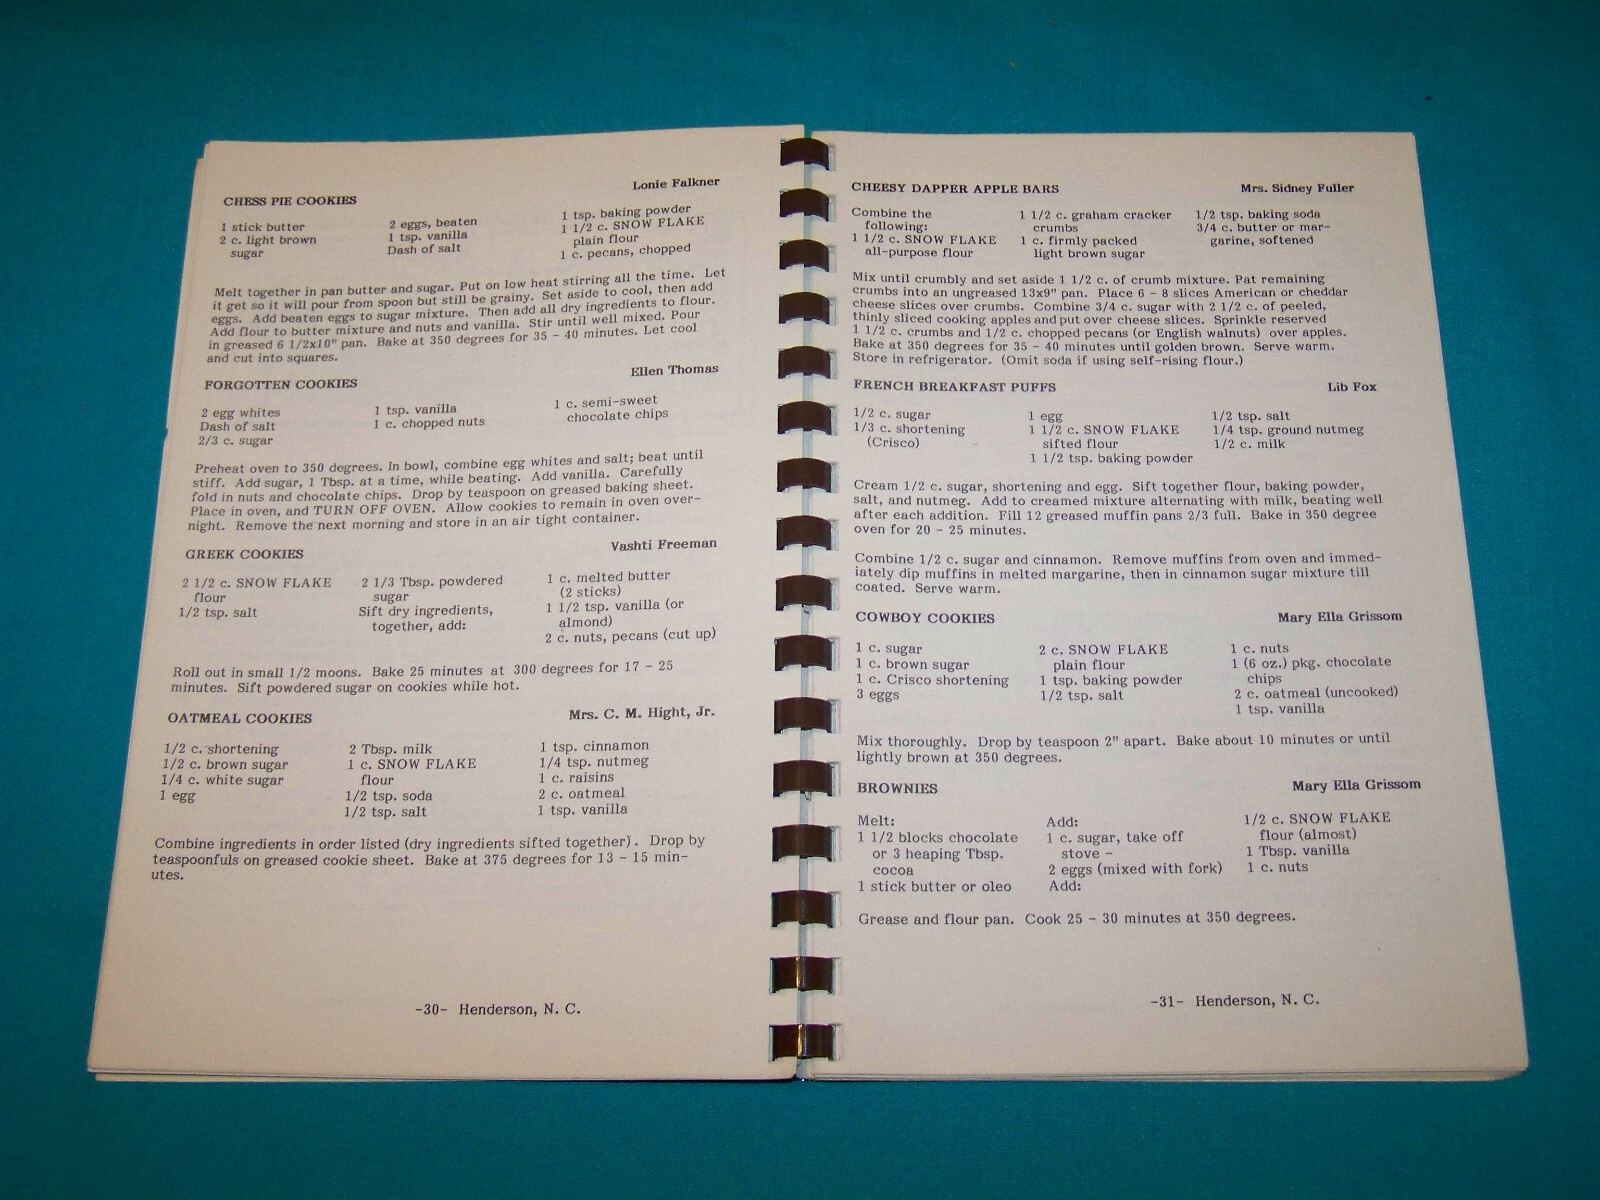 Lonie Falkner
CHESS PIE COOKIES
1 stick butter
2 c. light brown
sugar
2 eggs, beaten
1 tsp. vanilla
Dash of salt
1 tsp. baking powder
1 1/2 c. SNOW FLAKE
plain flour
1 c. pecans, chopped
Melt together in pan butter and sugar. Put on low heat stirring all the time. Let
it get so it will pour from spoon but still be grainy. Set aside to cool, then add
eggs. Add beaten eggs to sugar mixture. Then add all dry ingredients to flour.
Add flour to butter mixture and nuts and vanilla. Stir until well mixed. Pour
in greased 6 1/2x10" pan. Bake at 350 degrees for 35 - 40 minutes. Let cool
and cut into squares.
Ellen Thomas
FORGOTTEN COOKIES
2 egg whites
Dash of salt
2/3 c. sugar
1 tsp. vanilla
1 c. chopped nuts
1 c. semi-sweet
chocolate chips
Preheat oven to 350 degrees. In bowl, combine egg whites and salt; beat until
stiff. Add sugar, 1 Tbsp. at a time, while beating. Add vanilla. Carefully
fold in nuts and chocolate chips. Drop by teaspoon on greased baking sheet.
Place in oven, and TURN OFF OVEN. Allow cookies to remain in oven over-
night. Remove the next morning and store in an air tight container.
Vashti Freeman
GREEK COOKIES
2 1/2 c. SNOW FLAKE
flour
1/2 tsp. salt
2 1/3 Tbsp. powdered
sugar
Sift dry ingredients,
together, add:
1 c. melted butter
(2 sticks)
1 1/2 tsp. vanilla (or
almond)
2 c. nuts, pecans (cut up)
Roll out in small 1/2 moons. Bake 25 minutes at 300 degrees for 17 - 25
minutes. Sift powdered sugar on cookies while hot.
OATMEAL COOKIES
Mrs. C. M. Hight, Jr.
1/2 c. shortening
1/2 c. brown sugar
1/4 c. white sugar
1 egg
2 Tbsp. milk
1 c. SNOW FLAKE
flour
1/2 tsp. soda
1/2 tsp. salt
1 tsp. cinnamon
1/4 tsp. nutmeg
1 c. raisins
2 c. oatmeal
1 tsp. vanilla
Combine ingredients in order listed (dry ingredients sifted together). Drop by
teaspoonfuls on greased cookie sheet. Bake at 375 degrees for 13 - 15 min-
utes.
-30- Henderson, N. C.
CHEESY DAPPER APPLE BARS
Mrs. Sidney Fuller
Combine the
following:
1 1/2 c. SNOW FLAKE
all-purpose flour
1 1/2 c. graham cracker
crumbs
1 c. firmly packed
light brown sugar
1/2 tsp. baking soda
3/4 c. butter or mar-
garine, softened
Mix until crumbly and set aside 1 1/2 c. of crumb mixture. Pat remaining
crumbs into an ungreased 13x9" pan. Place 6 - 8 slices American or cheddar
cheese slices over crumbs. Combine 3/4 c. sugar with 2 1/2 c. of peeled,
thinly sliced cooking apples and put over cheese slices. Sprinkle reserved
1 1/2 c. crumbs and 1/2 c. chopped pecans (or English walnuts) over apples.
Bake at 350 degrees for 35 - 40 minutes until golden brown. Serve warm.
Store in refrigerator. (Omit soda if using self-rising flour.)
FRENCH BREAKFAST PUFFS
Lib Fox
1/2 c. sugar
1/3 c. shortening
(Crisco)
1 egg
1 1/2 c. SNOW FLAKE
sifted flour
1 1/2 tsp. baking powder
1/2 tsp. salt
1/4 tsp. ground nutmeg
1/2 c. milk
Cream 1/2 c. sugar, shortening and egg. Sift together flour, baking powder,
salt, and nutmeg. Add to creamed mixture alternating with milk, beating well
after each addition. Fill 12 greased muffin pans 2/3 full. Bake in 350 degree
oven for 20 - 25 minutes.
Combine 1/2 c. sugar and cinnamon. Remove muffins from oven and immed-
iately dip muffins in melted margarine, then in cinnamon sugar mixture till
coated. Serve warm.
COWBOY COOKIES
Mary Ella Grissom
1 c. sugar
1 c. brown sugar
1 c. Crisco shortening
3 eggs
2 c. SNOW FLAKE
plain flour
1 tsp. baking powder
1/2 tsp. salt
1 c. nuts
1 (6 oz.) pkg. chocolate
chips
2 c. oatmeal (uncooked)
1 tsp. vanilla
Mix thoroughly. Drop by teaspoon 2" apart. Bake about 10 minutes or until
lightly brown at 350 degrees.
BROWNIES
Mary Ella Grissom
Melt:
1 1/2 blocks chocolate
or 3 heaping Tbsp.
cocoa
1 stick butter or oleo
Add:
1 c. sugar, take off
stove -
2 eggs (mixed with fork)
Add:
1/2 c. SNOW FLAKE
flour (almost)
1 Tbsp. vanilla
1 c. nuts
Grease and flour pan. Cook 25 - 30 minutes at 350 degrees.
-31- Henderson, N. C.